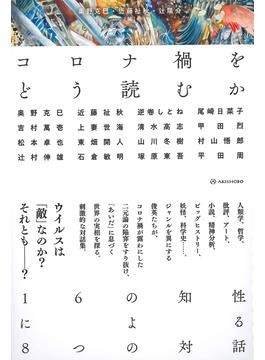 奥野克巳・近藤祉秋・辻陽介 編
コロナ禍を
どう読むか
奥野克巳 近藤祉秋 逆卷しとね 尾崎日菜子
吉村萬壱 上妻世海 清水高志 甲田烈
松本卓也 東畑開人 山川冬樹 村山悟郎
辻村伸雄 石倉敏明 塚原東吾 平田周
AKISHOBO
人類学、哲学、
批評、アート、
小説、精神分析、
ビッグヒストリー、
妖怪、科学史……、
ジャンルを異にする
俊英たちが、
コロナ禍が露わにした
二元論の陥穽をすり抜け、
「あいだ」に息づく
世界の実相を探る、
刺激的な対話集。
ウイルスは
「敵」なのか?
それとも――?
16の知性
による
8つの対話